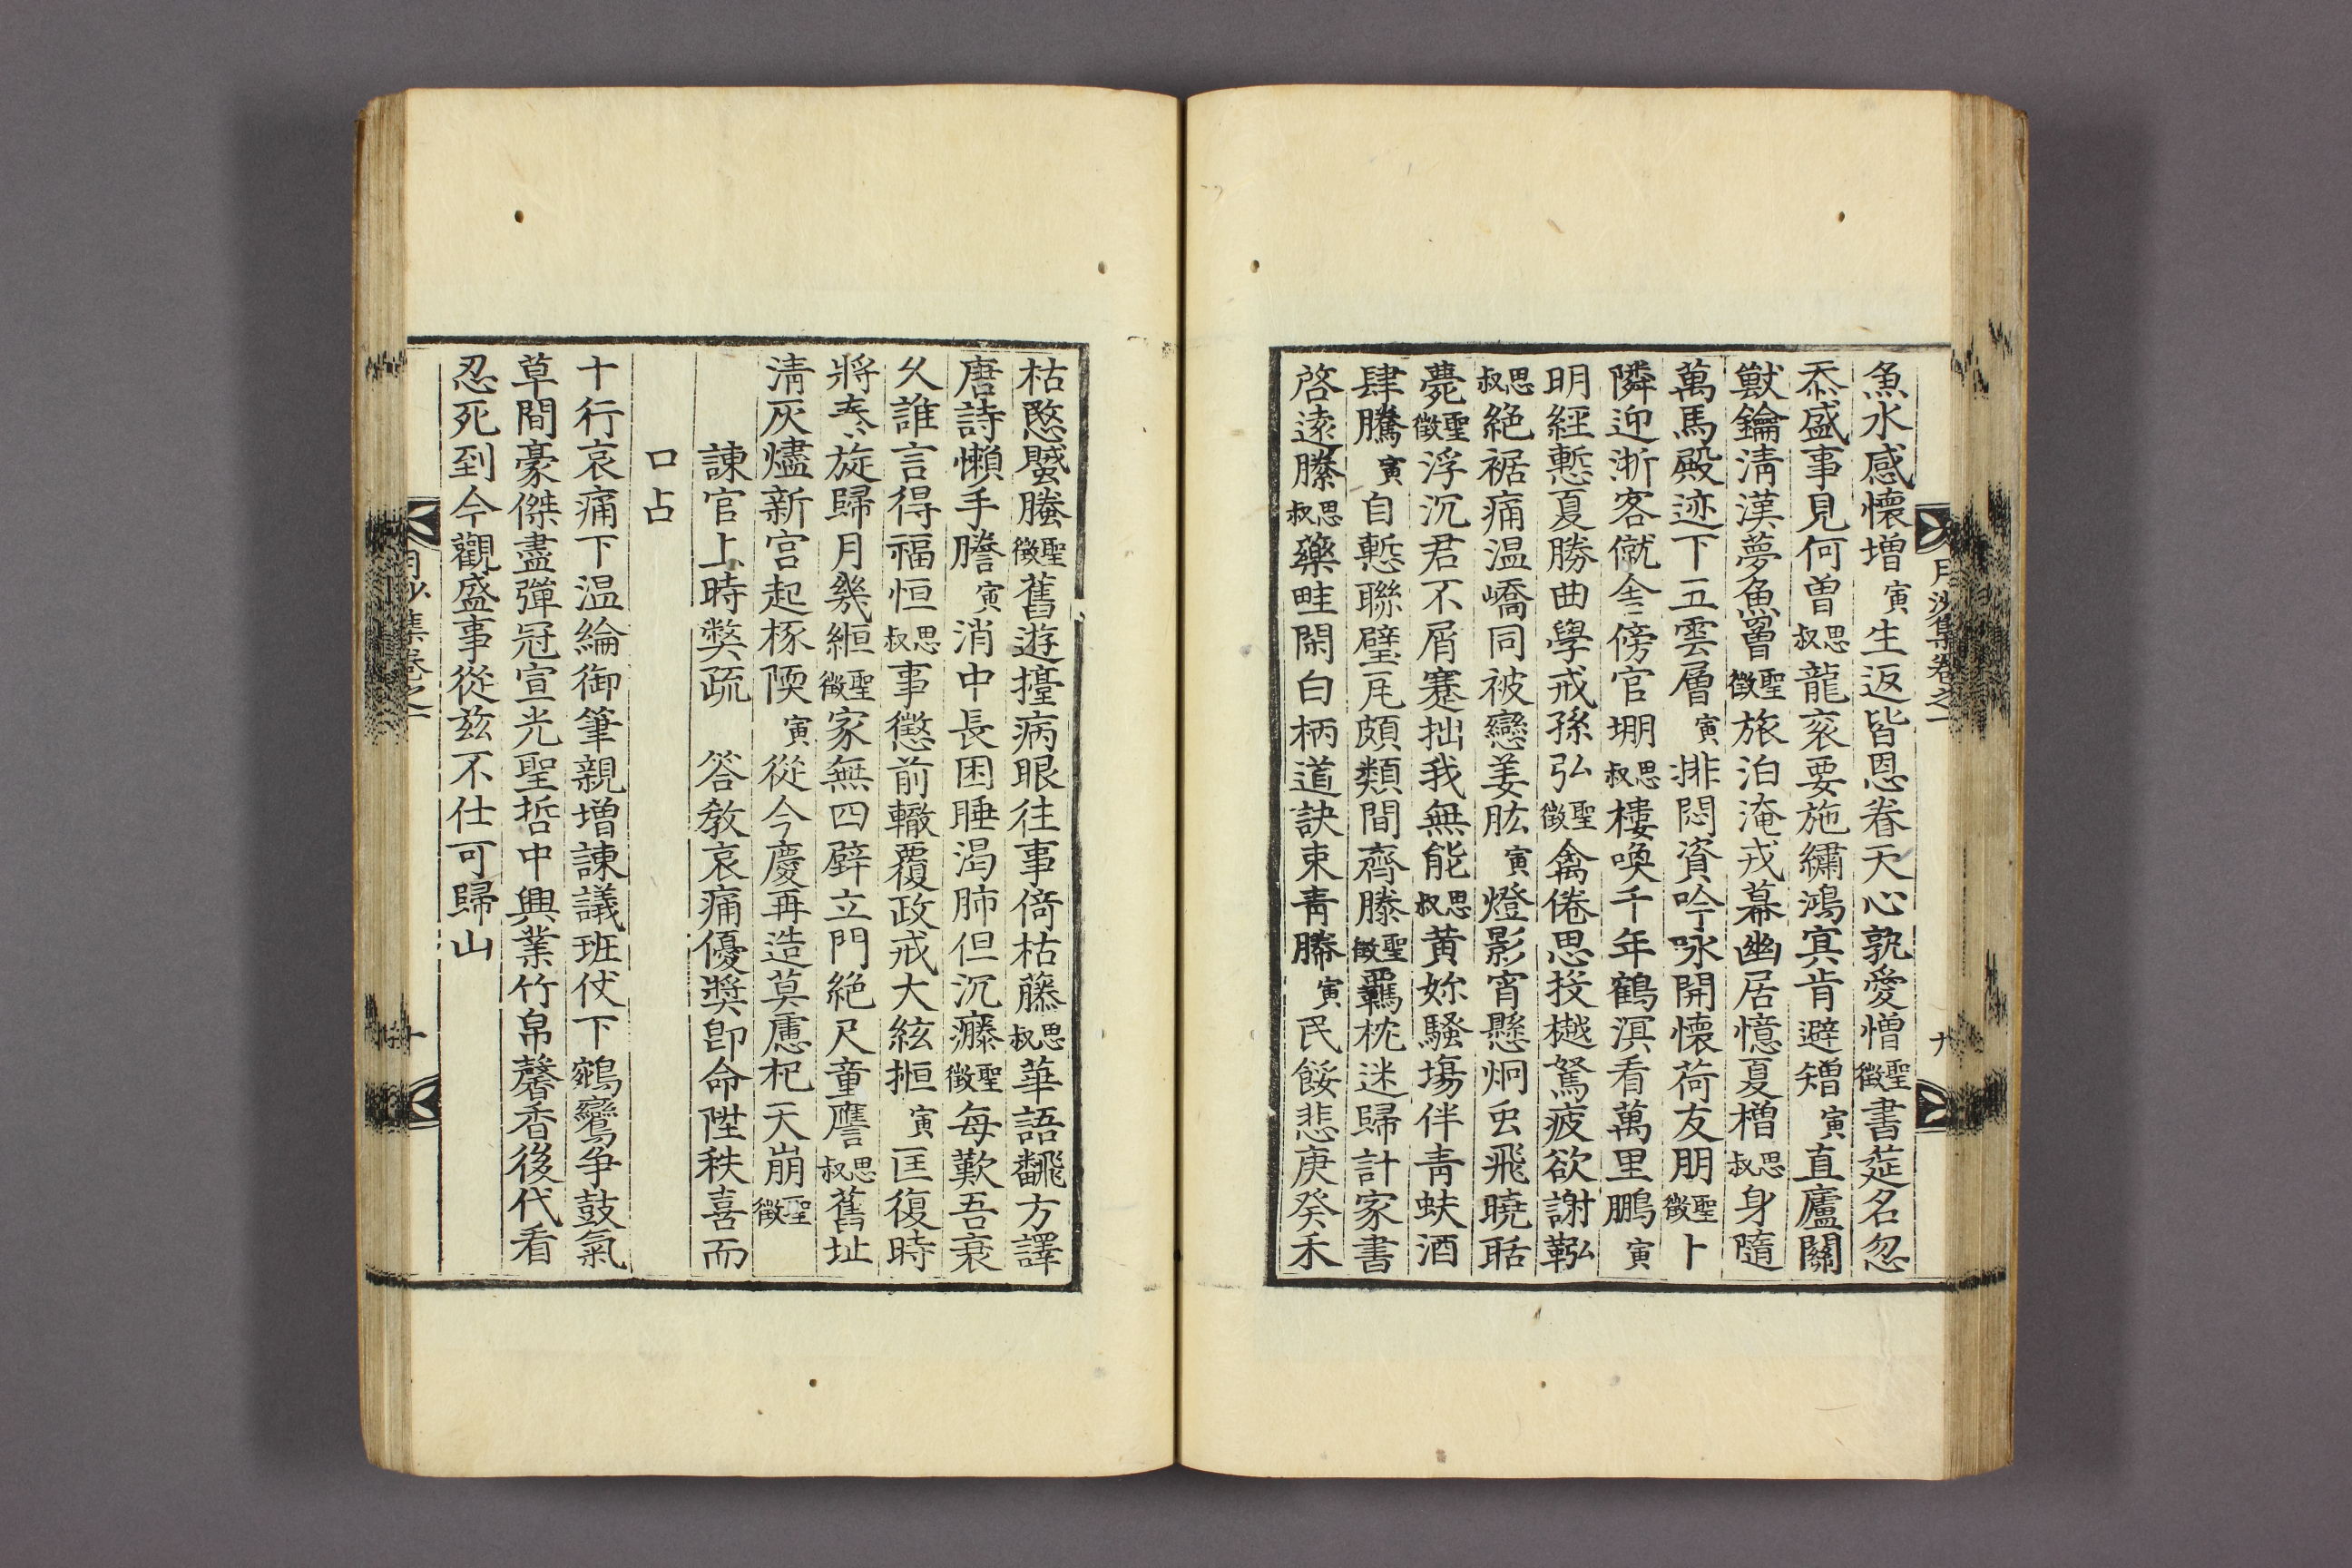 月沙集卷之一
九
魚水感懷增寅生返皆恩眷天心孰愛憎聖徵書莚名忽
忝盛事見何曾思叔龍衮要施繡鴻㝠肯避矰寅直廬關
獸鑰淸漢夢魚罾聖徵旅泊淹戎幕幽居憶夏橧思叔身隨
萬馬殿迹下五雲層寅排悶資吟咏開懷荷友朋聖徵卜
隣迎浙客僦舍傍官堋思叔樓喚千年鶴溟看萬里鵬寅
明經慙夏勝曲學戒孫弘聖徵禽倦思投樾駑疲欲謝鞃
思叔絶裾痛温嶠同被戀姜肱寅燈影宵懸炯虫飛曉聒
薨聖徵浮沉君不屑蹇拙我無能思叔黃妳騷塲伴靑蚨酒
肆騰寅自慙聯璧瓦頗類間齊滕聖徵羈枕迷歸計家書
啓遠縢思叔藥畦閑白柄道訣束靑幐寅民餒悲庚癸禾
枯愍䘃螣聖徵舊遊擡病眼往事倚枯藤思叔華語飜方譯
唐詩懶手謄寅消中長困睡渴肺但沉癊聖徵每歎吾衰
久誰言得福恒思叔事懲前轍覆政戒大絃搄寅匡復時
將泰旋歸月幾縆聖徵家無四壁立門絶尺童譍思叔舊址
淸灰燼新宮起椓陾寅從今慶再造莫慮杞天崩聖徵
諫官上時獘疏　答敎哀痛優奬卽命陞秩喜而
口占
十行哀痛下温綸御筆親增諫議班仗下鵷鸞爭鼓氣
草間豪傑盡彈冠宣光聖哲中興業竹帛馨香後代看
忍死到今觀盛事從玆不仕可歸山
月沙集卷之一
十